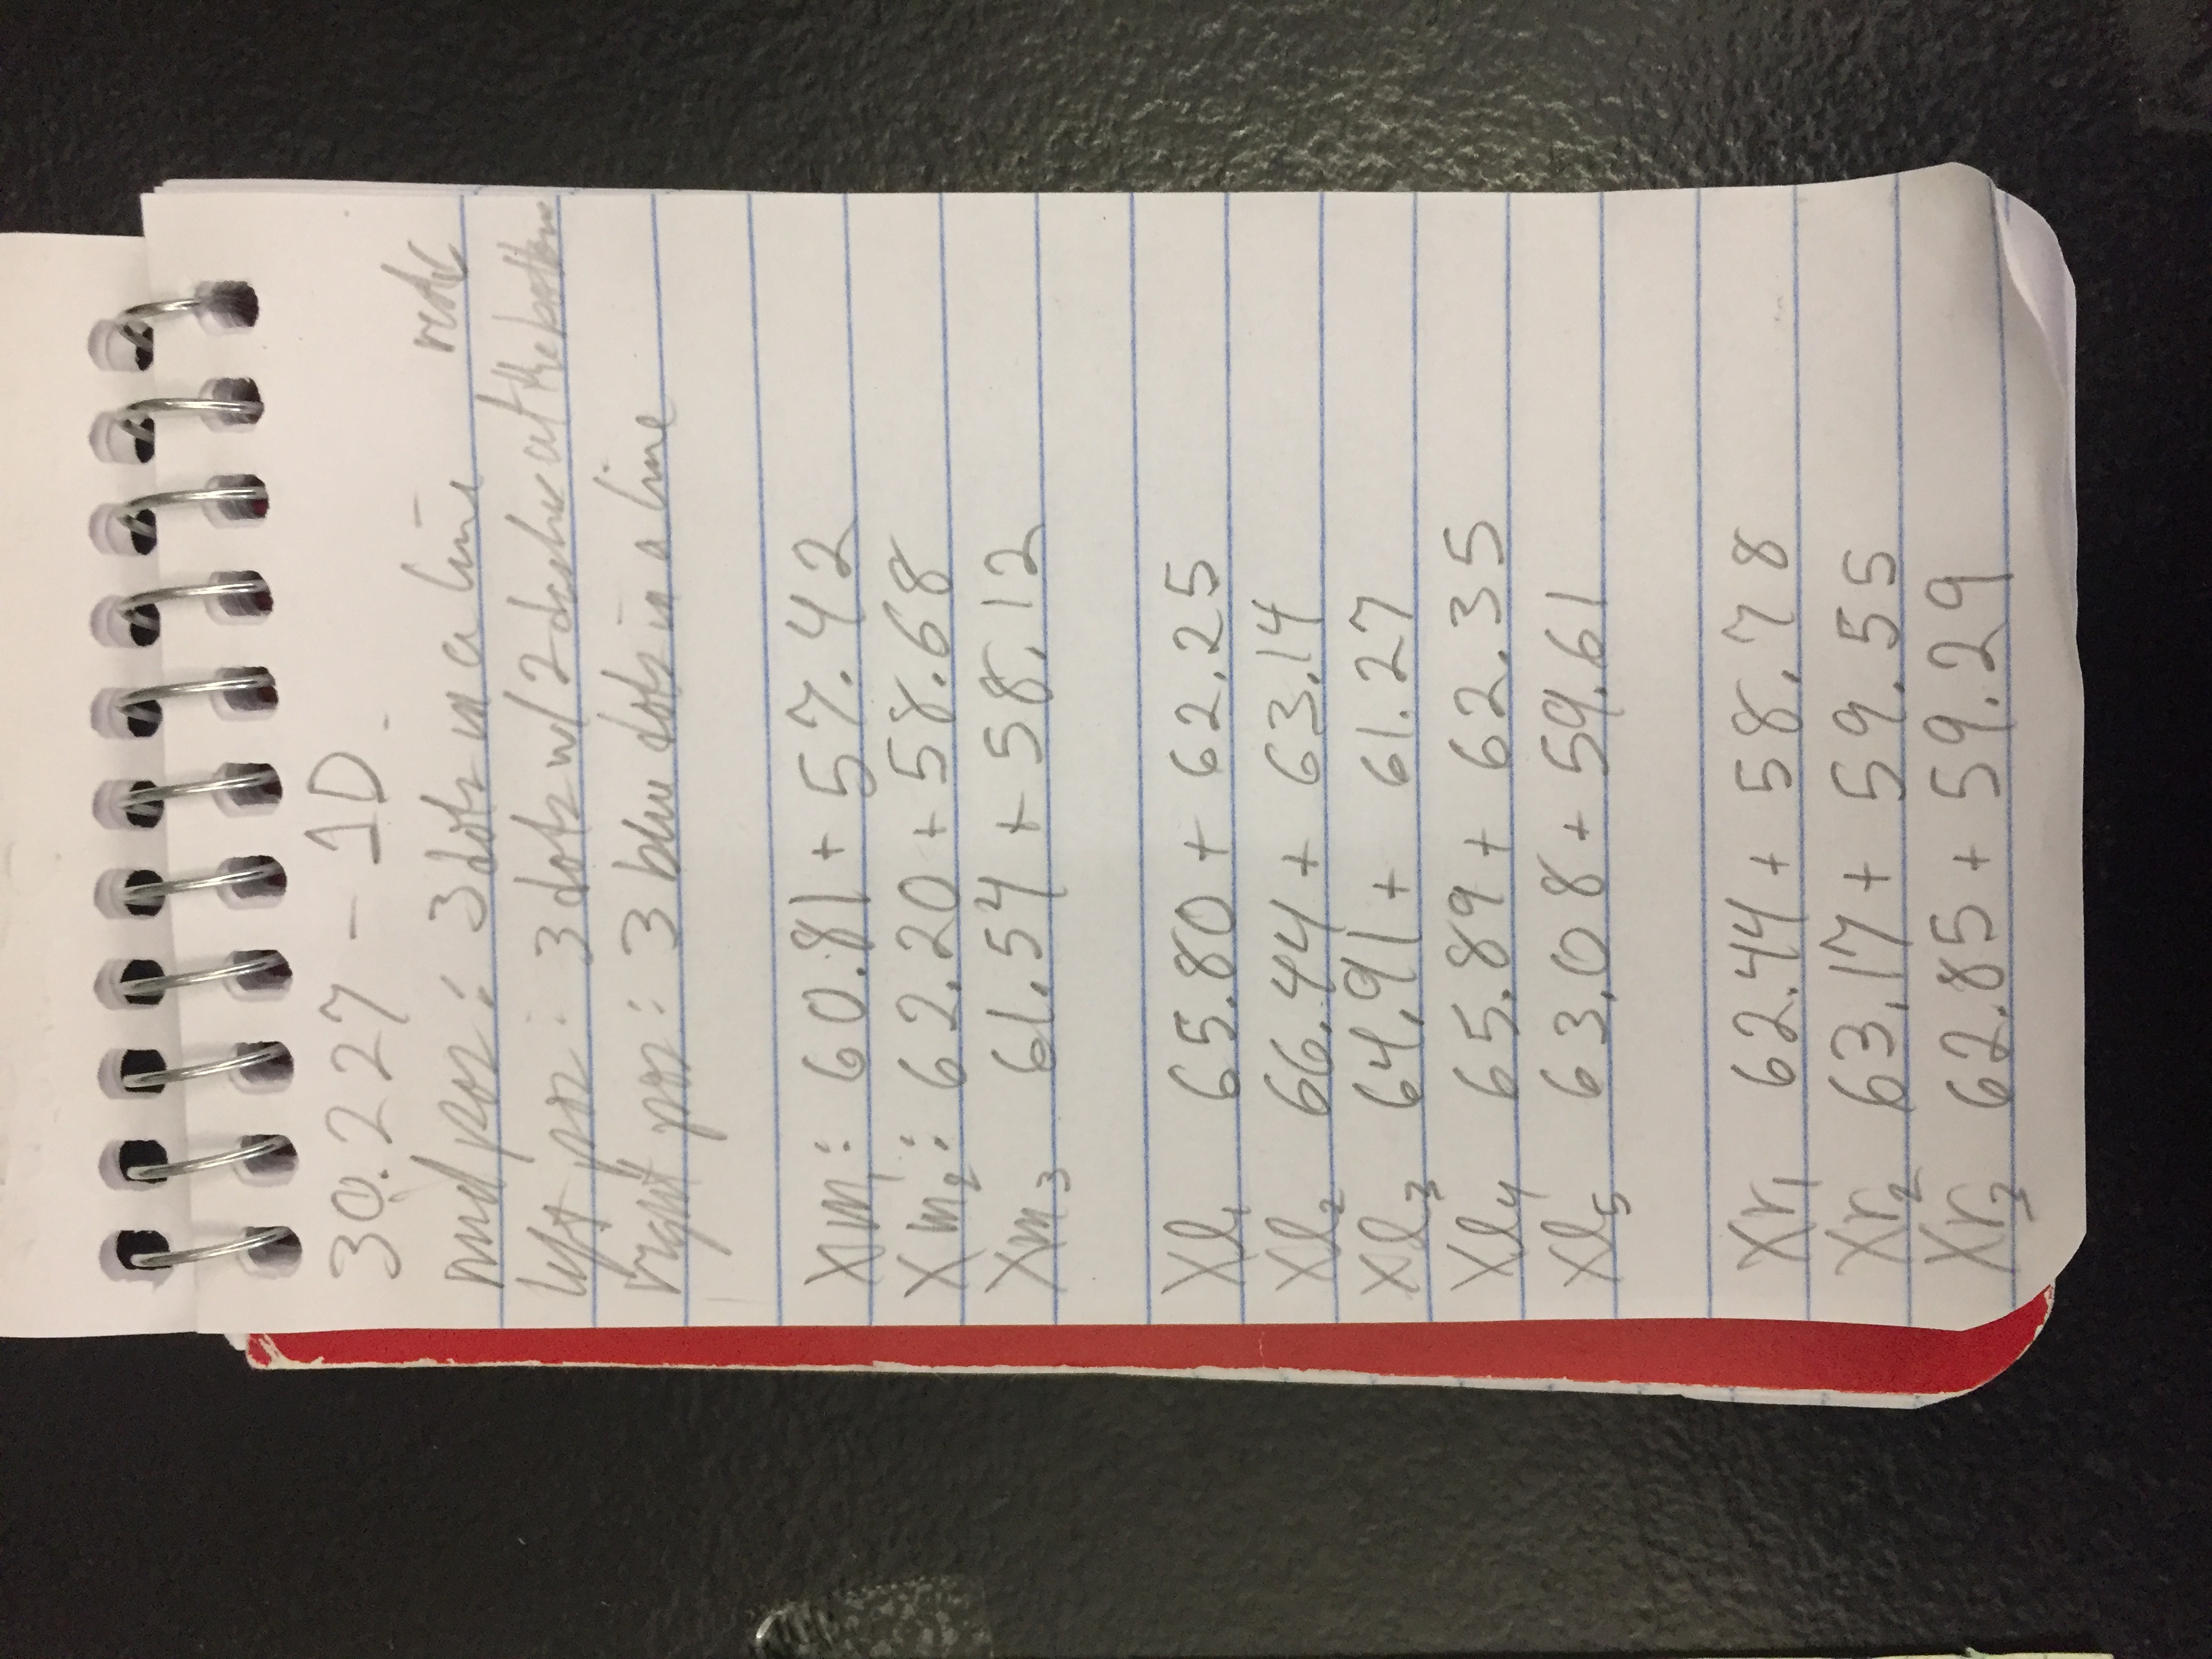 30.227 - 1D.
mid pos: 3 dots in a line
left pos: 3 dots w/ 2 dashes at the bottom
right pos: 3 blue dots in a line
Xm1: 60.81 + 57.42
Xm2: 62.20 + 58.68
Xm3 61.54 + 58.12
Xl1 65.80 + 62.25
Xl2 66.44 + 63.14
Xl3 64.91 + 61.27
Xl4 65.89 + 62.35
Xl5 63.08 + 59.61
Xr1 62.44 + 58.78
Xr2 63.17 + 59.55
Xr3 62.85 + 59.29